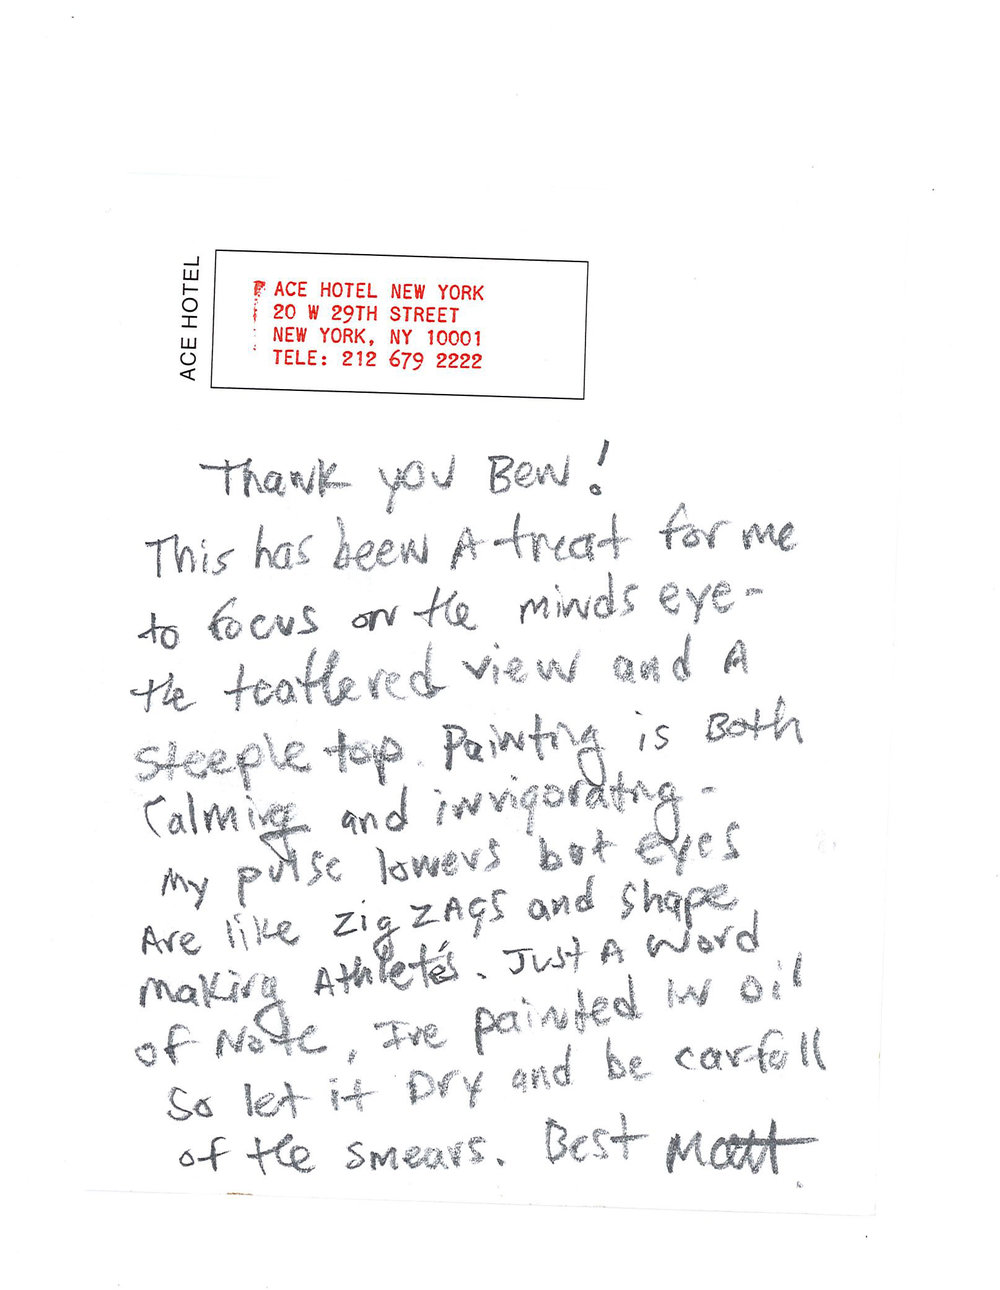 ACE HOTEL
ACE HOTEL NEW YORK
20 W 29TH STREET
NEW YORK, NY 10001
TELE: 212 679 2222
Thank you Ben!
This has been A treat for me
to focus on the minds eye-
the teathered view and A
steeple top. Painting is Both
Calming and invigorating -
My pulse lowers but eyes
Are like zig zAgs and shape
making Athleté's. Just A word
of Note, I've painted IN oil
So let it Dry and be carfull
of the smears. Best Matt